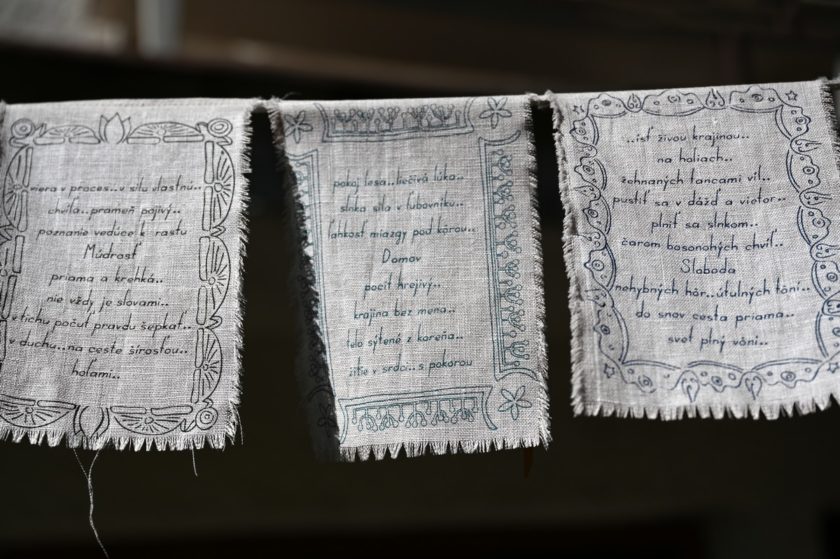 viera v proces..v silu vlastnú..
chvíľa..prameň pájivý..
poznanie vedúce k rastu
Múdrosť
priama a krehká..
nie vždy je slovami..
v tichu počuť pravdu šepkať..
v duchu..na ceste šírosťou..
hoľami..
pokoj lesa..liečivá lúka..
slnka sila v ľubovníku..
ľahkosť miazgy pod kôrou..
Domov
pocit hrejivý..
krajina bez mena..
telo sýtené z koreňa..
tíšie v srdci..s pokorou
..ísť živou krajinou..
na holiach..
žehnaných tancami víl..
pustiť sa v dážď a vietor..
plniť sa slnkom..
čarom bosonohých chvíľ..
Sloboda
nehybných hôr..útulných tôní..
do snov cesta priama..
svet plný vôní..